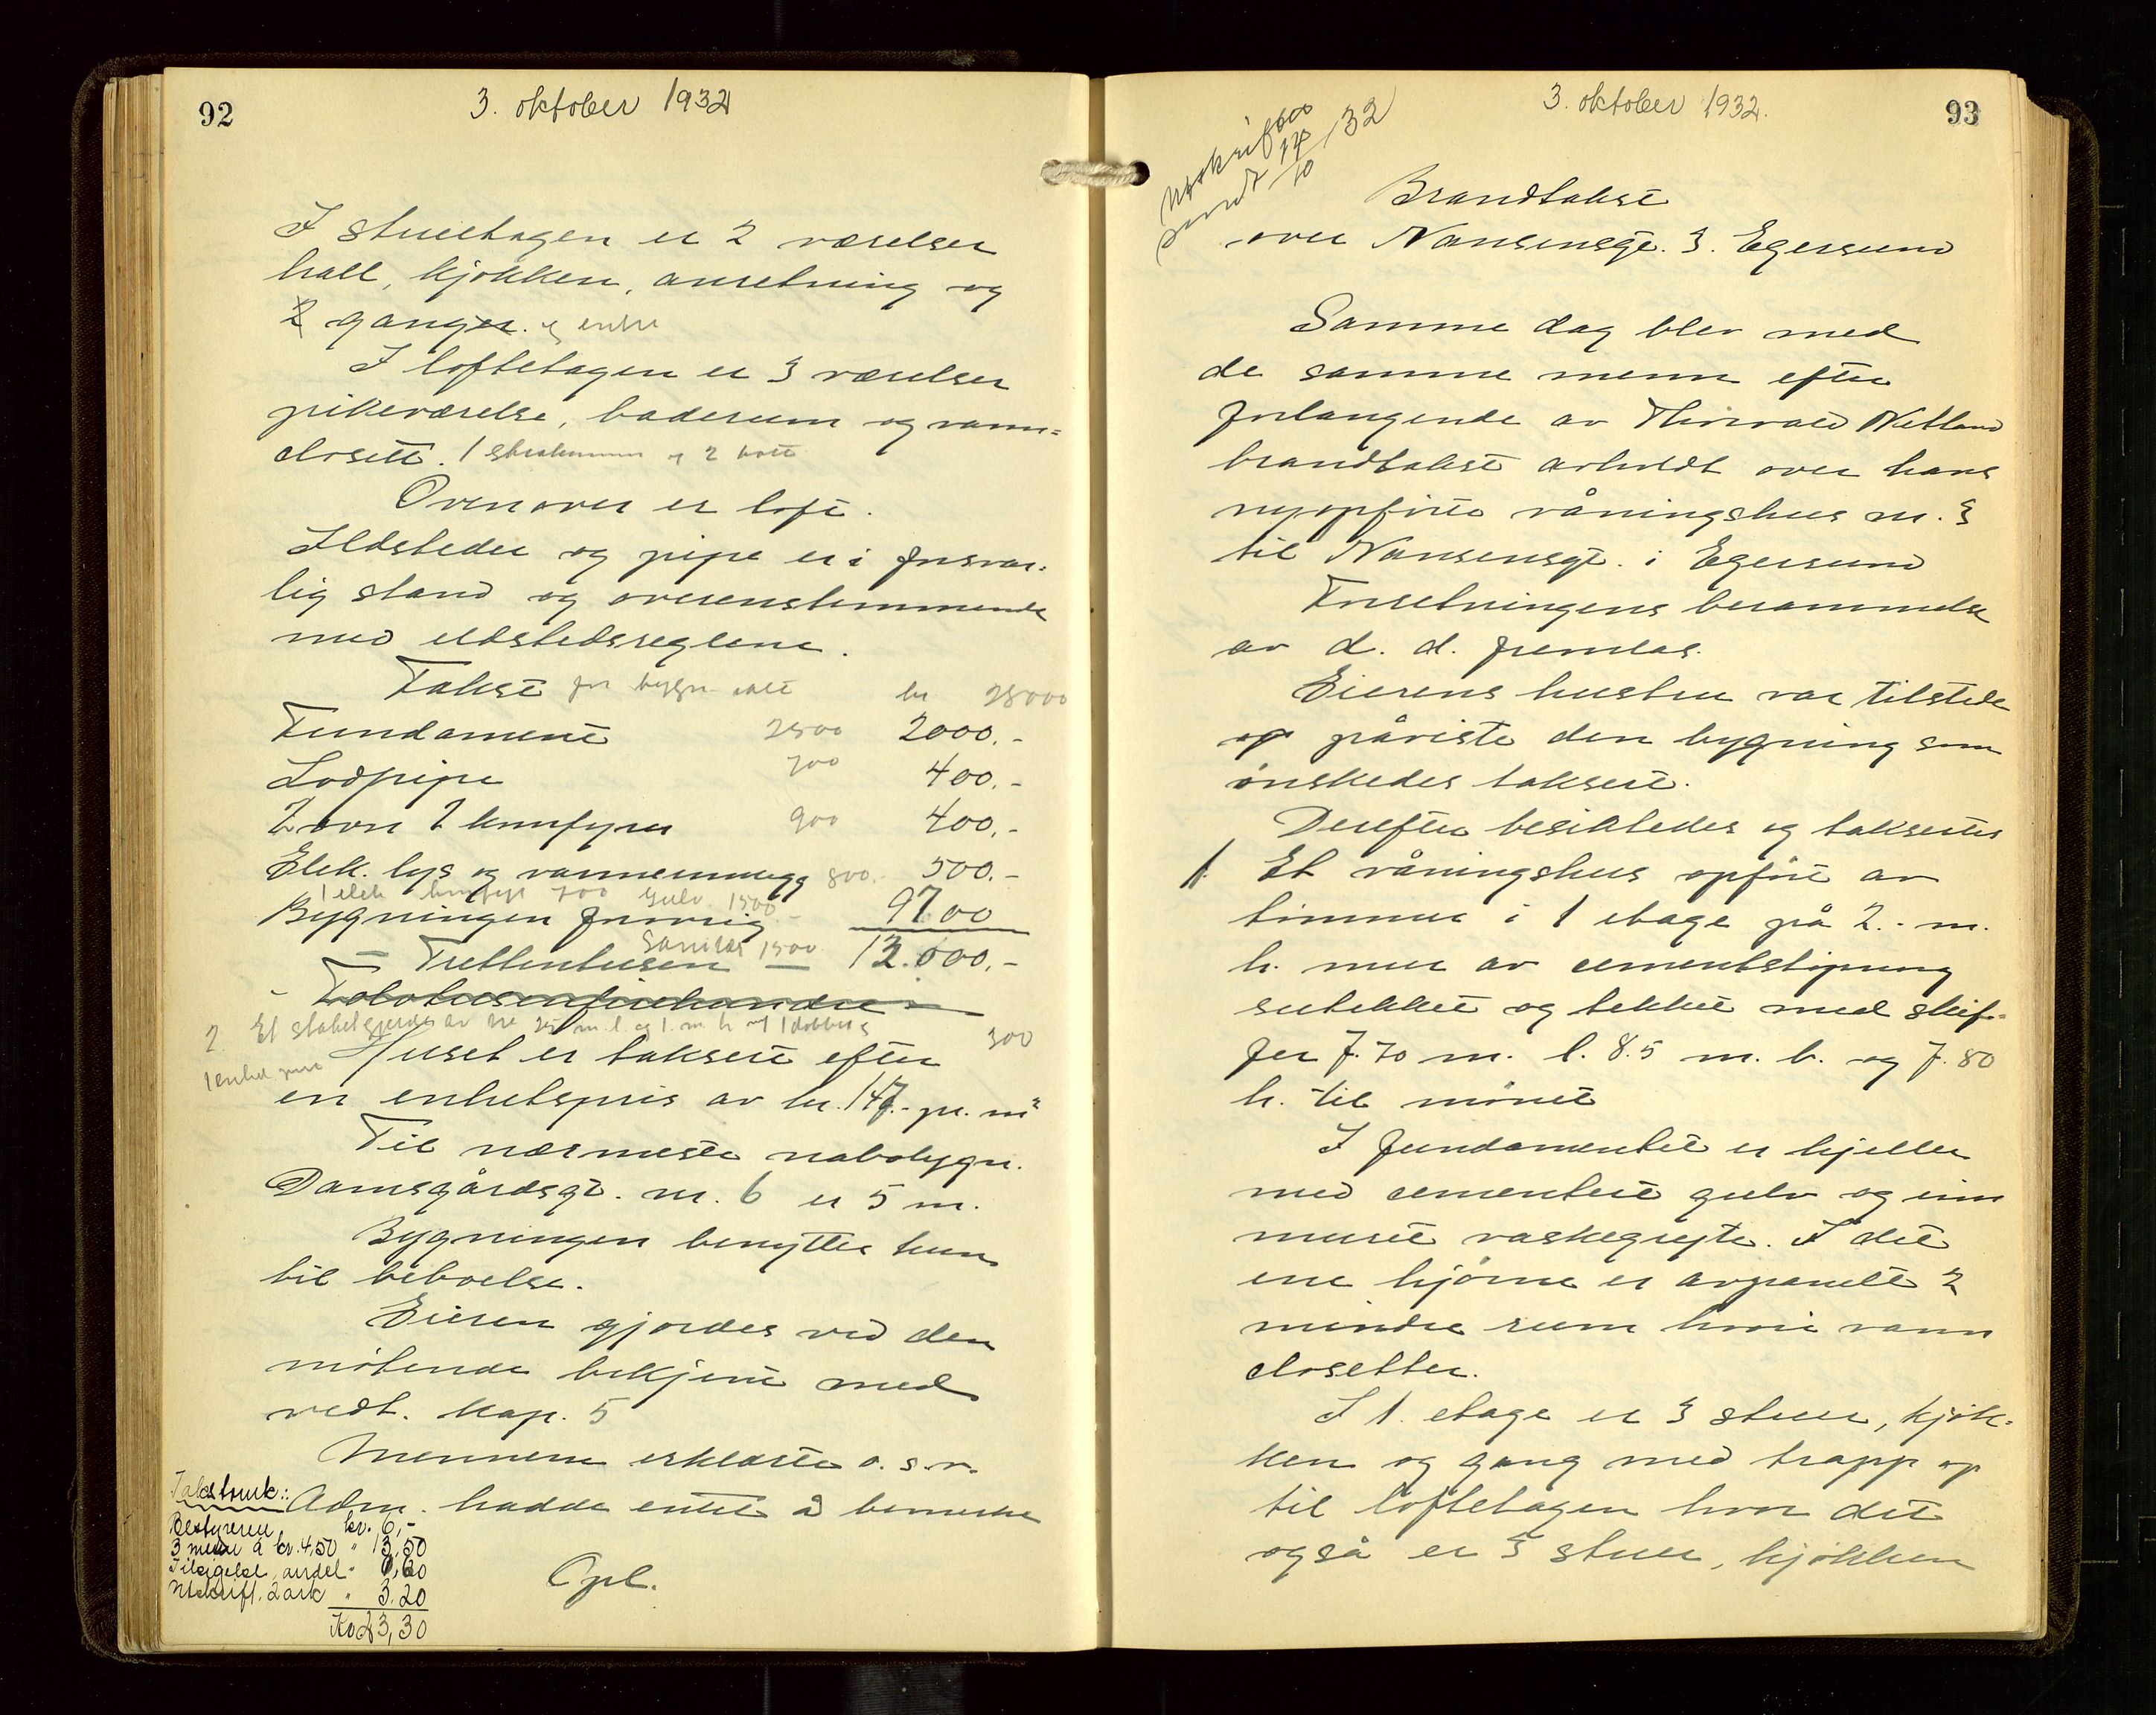 92
3. oktober 1932
I stueetagen er 2 værelser
hall, kjøkken, anretning og
2 ganger. og entre
I loftetagen er 3 værelser
pikeværelse, baderum og vann-
closett. 2 kott
Ovenover er loft.
Ildsteder og pipe er i forsvar-
lig stand og overenstemmende
med ildstedsreglene.
Takst for bygn. kr 28000
Fundament 2500 2000.-
Lodpipe 700 400.-
2 ovn 2 komfyrer 900 400.-
Elek. lys og varmeanlegg 800.- 500.-
1 elek komfyr 700 Gulv 1500.-
Bygningen forøvrig 9700
Sanitær 1500
— Trettentusen — 13.000.-
- Tolvtusenfirehundre -
2. Et stakitgjerde av tre 25 m. l. og 1 m. h. 1 dobbel og 300
1 enkel port
Huset er taksert efter
en enhetspris av kr. 147.- pr. m²
Til nærmeste nabobygn.
Damsgårdsgt. nr. 6 er 5 m.
Bygningen benyttes kun
til beboelse.
Eieren gjordes ved den
møtende bekjent med
vedt. kap. 5
Mennene erklærte o.s.v.
Adm. hadde intet å bemerke
Opl.
Bestyreren kr. 6,-
3 menn à kr. 4,50 " 13,50
andel " 0,60
Utskrift. 2 ark " 3.20
Kr 23,30
93
3. oktober 1932.
Utskrift
sendt 14/10 /32
Brandtakst
over Nansensgt. 3. Egersund
Samme dag blev med
de samme menn efter
forlangende av Thorvald Netland
brandtakst avholdt over hans
nyopførte våningshus nr. 3
til Nansensgt. i Egersund
Forretningens berammelse
av d. d. fremlas.
Eierens hustru var tilstede
og påviste den bygning som
ønskedes taksert.
Derefter besiktedes og takserte
1. Et våningshus opført av
tømmer i 1 etage på 2.- m.
h. mur av cementstøpning
sutekket og tekket med skif-
fer 7.70 m. l. 8.5 m. b. og 7.80
h. til mønet
I fundamentet er kjeller
med cementert gulv og inn
muret vaskegryte. I det
ene hjørne er avpanelt 2
mindre rum hvori vann
closetter.
I 1. etage er 3 stuer, kjøk-
ken og gang med trapp op
til loftetagen hvor det
også er 3 stuer, kjøkken